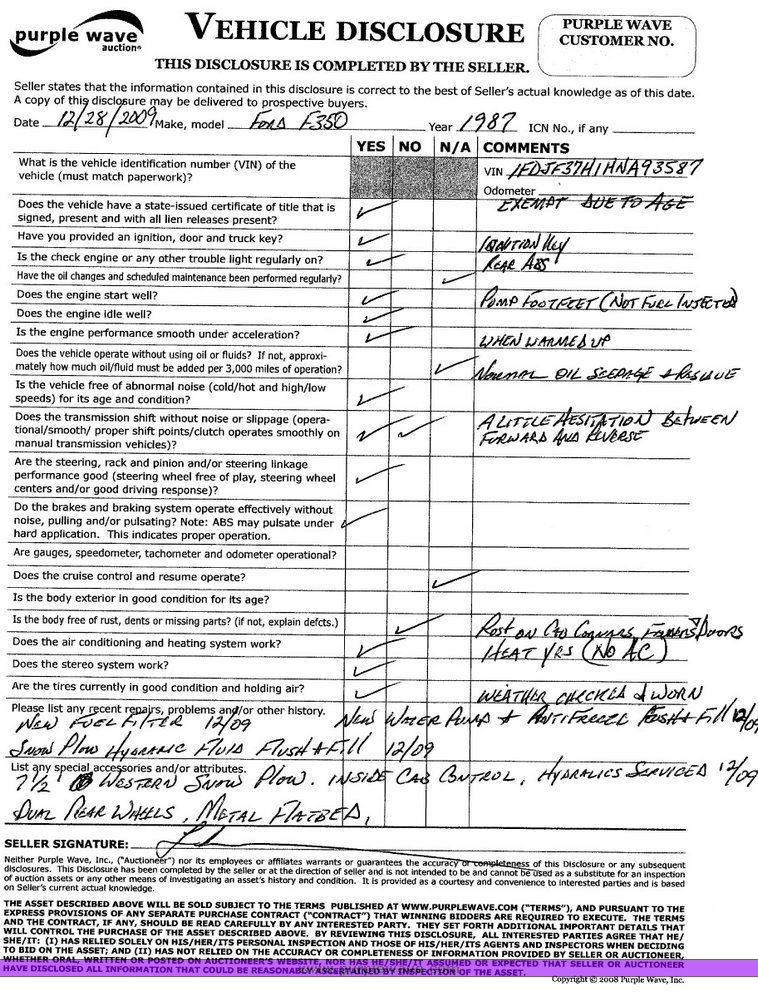 purple wave
auction®
VEHICLE DISCLOSURE
PURPLE WAVE
CUSTOMER NO.
THIS DISCLOSURE IS COMPLETED BY THE SELLER.
Seller states that the information contained in this disclosure is correct to the best of Seller's actual knowledge as of this date.
A copy of this disclosure may be delivered to prospective buyers.
Date 12/28/2009 Make, model FORD F350 Year 1987 ICN No., if any
YES NO N/A COMMENTS
What is the vehicle identification number (VIN) of the
vehicle (must match paperwork)?
VIN 1FDJF37H1HNA93587
Odometer
EXEMPT DUE TO AGE
Does the vehicle have a state-issued certificate of title that is
signed, present and with all lien releases present?
Have you provided an ignition, door and truck key?
IGNITION KEY
Is the check engine or any other trouble light regularly on?
REAR ABS
Have the oil changes and scheduled maintenance been performed regularly?
Does the engine start well?
PUMP FOOTFEET (NOT FUEL INJECTED)
Does the engine idle well?
Is the engine performance smooth under acceleration?
WHEN WARMED UP
Does the vehicle operate without using oil or fluids? If not, approxi-
mately how much oil/fluid must be added per 3,000 miles of operation?
NORMAL OIL SEEPAGE + RESIDUE
Is the vehicle free of abnormal noise (cold/hot and high/low
speeds) for its age and condition?
Does the transmission shift without noise or slippage (opera-
tional/smooth/ proper shift points/clutch operates smoothly on
manual transmission vehicles)?
A LITTLE HESITATION BETWEEN
FORWARD AND REVERSE
Are the steering, rack and pinion and/or steering linkage
performance good (steering wheel free of play, steering wheel
centers and/or good driving response)?
Do the brakes and braking system operate effectively without
noise, pulling and/or pulsating? Note: ABS may pulsate under
hard application. This indicates proper operation.
Are gauges, speedometer, tachometer and odometer operational?
Does the cruise control and resume operate?
Is the body exterior in good condition for its age?
Is the body free of rust, dents or missing parts? (if not, explain defcts.)
RUST ON CAB CORNERS, FENDERS, DOORS
Does the air conditioning and heating system work?
HEAT YES (NO AC)
Does the stereo system work?
Are the tires currently in good condition and holding air?
WEATHER CHECKED & WORN
Please list any recent repairs, problems and/or other history.
NEW FUEL FILTER 12/09 NEW WATER PUMP + ANTIFREEZE FLUSH + FILL 12/09
SNOW PLOW HYDRAULIC FLUID FLUSH + FILL 12/09
List any special accessories and/or attributes.
7 1/2 WESTERN SNOW PLOW. INSIDE CAB CONTROL, HYDRALICS SERVICED 12/09
DUAL REAR WHEELS, METAL FLATBED,
SELLER SIGNATURE:
Neither Purple Wave, Inc., ("Auctioneer") nor its employees or affiliates warrants or guarantees the accuracy or completeness of this Disclosure or any subsequent
disclosures. This Disclosure has been completed by the seller or at the direction of seller and is not intended to be and cannot be used as a substitute for an inspection
of auction assets or any other means of investigating an asset's history and condition. It is provided as a courtesy and convenience to interested parties and is based
on Seller's current actual knowledge.
THE ASSET DESCRIBED ABOVE WILL BE SOLD SUBJECT TO THE TERMS PUBLISHED AT WWW.PURPLEWAVE.COM ("TERMS"), AND PURSUANT TO THE
EXPRESS PROVISIONS OF ANY SEPARATE PURCHASE CONTRACT ("CONTRACT") THAT WINNING BIDDERS ARE REQUIRED TO EXECUTE. THE TERMS
AND THE CONTRACT, IF ANY, SHOULD BE READ CAREFULLY BY ANY INTERESTED PARTY. THEY SET FORTH ADDITIONAL IMPORTANT DETAILS THAT
WILL CONTROL THE PURCHASE OF THE ASSET DESCRIBED ABOVE. BY REVIEWING THIS DISCLOSURE, ALL INTERESTED PARTIES AGREE THAT HE/
SHE/IT: (I) HAS RELIED SOLELY ON HIS/HER/ITS PERSONAL INSPECTION AND THOSE OF HIS/HER/ITS AGENTS AND INSPECTORS WHEN DECIDING
TO BID ON THE ASSET; AND (II) HAS NOT RELIED ON THE ACCURACY OR COMPLETENESS OF INFORMATION PROVIDED BY SELLER OR AUCTIONEER,
WHETHER ORAL, WRITTEN OR POSTED ON AUCTIONEER'S WEBSITE, NOR HAS HE/SHE/IT ASSUMED OR EXPECTED THAT SELLER OR AUCTIONEER
HAVE DISCLOSED ALL INFORMATION THAT COULD BE REASONABLY ASCERTAINED BY INSPECTION OF THE ASSET.
Copyright © 2008 Purple Wave, Inc.